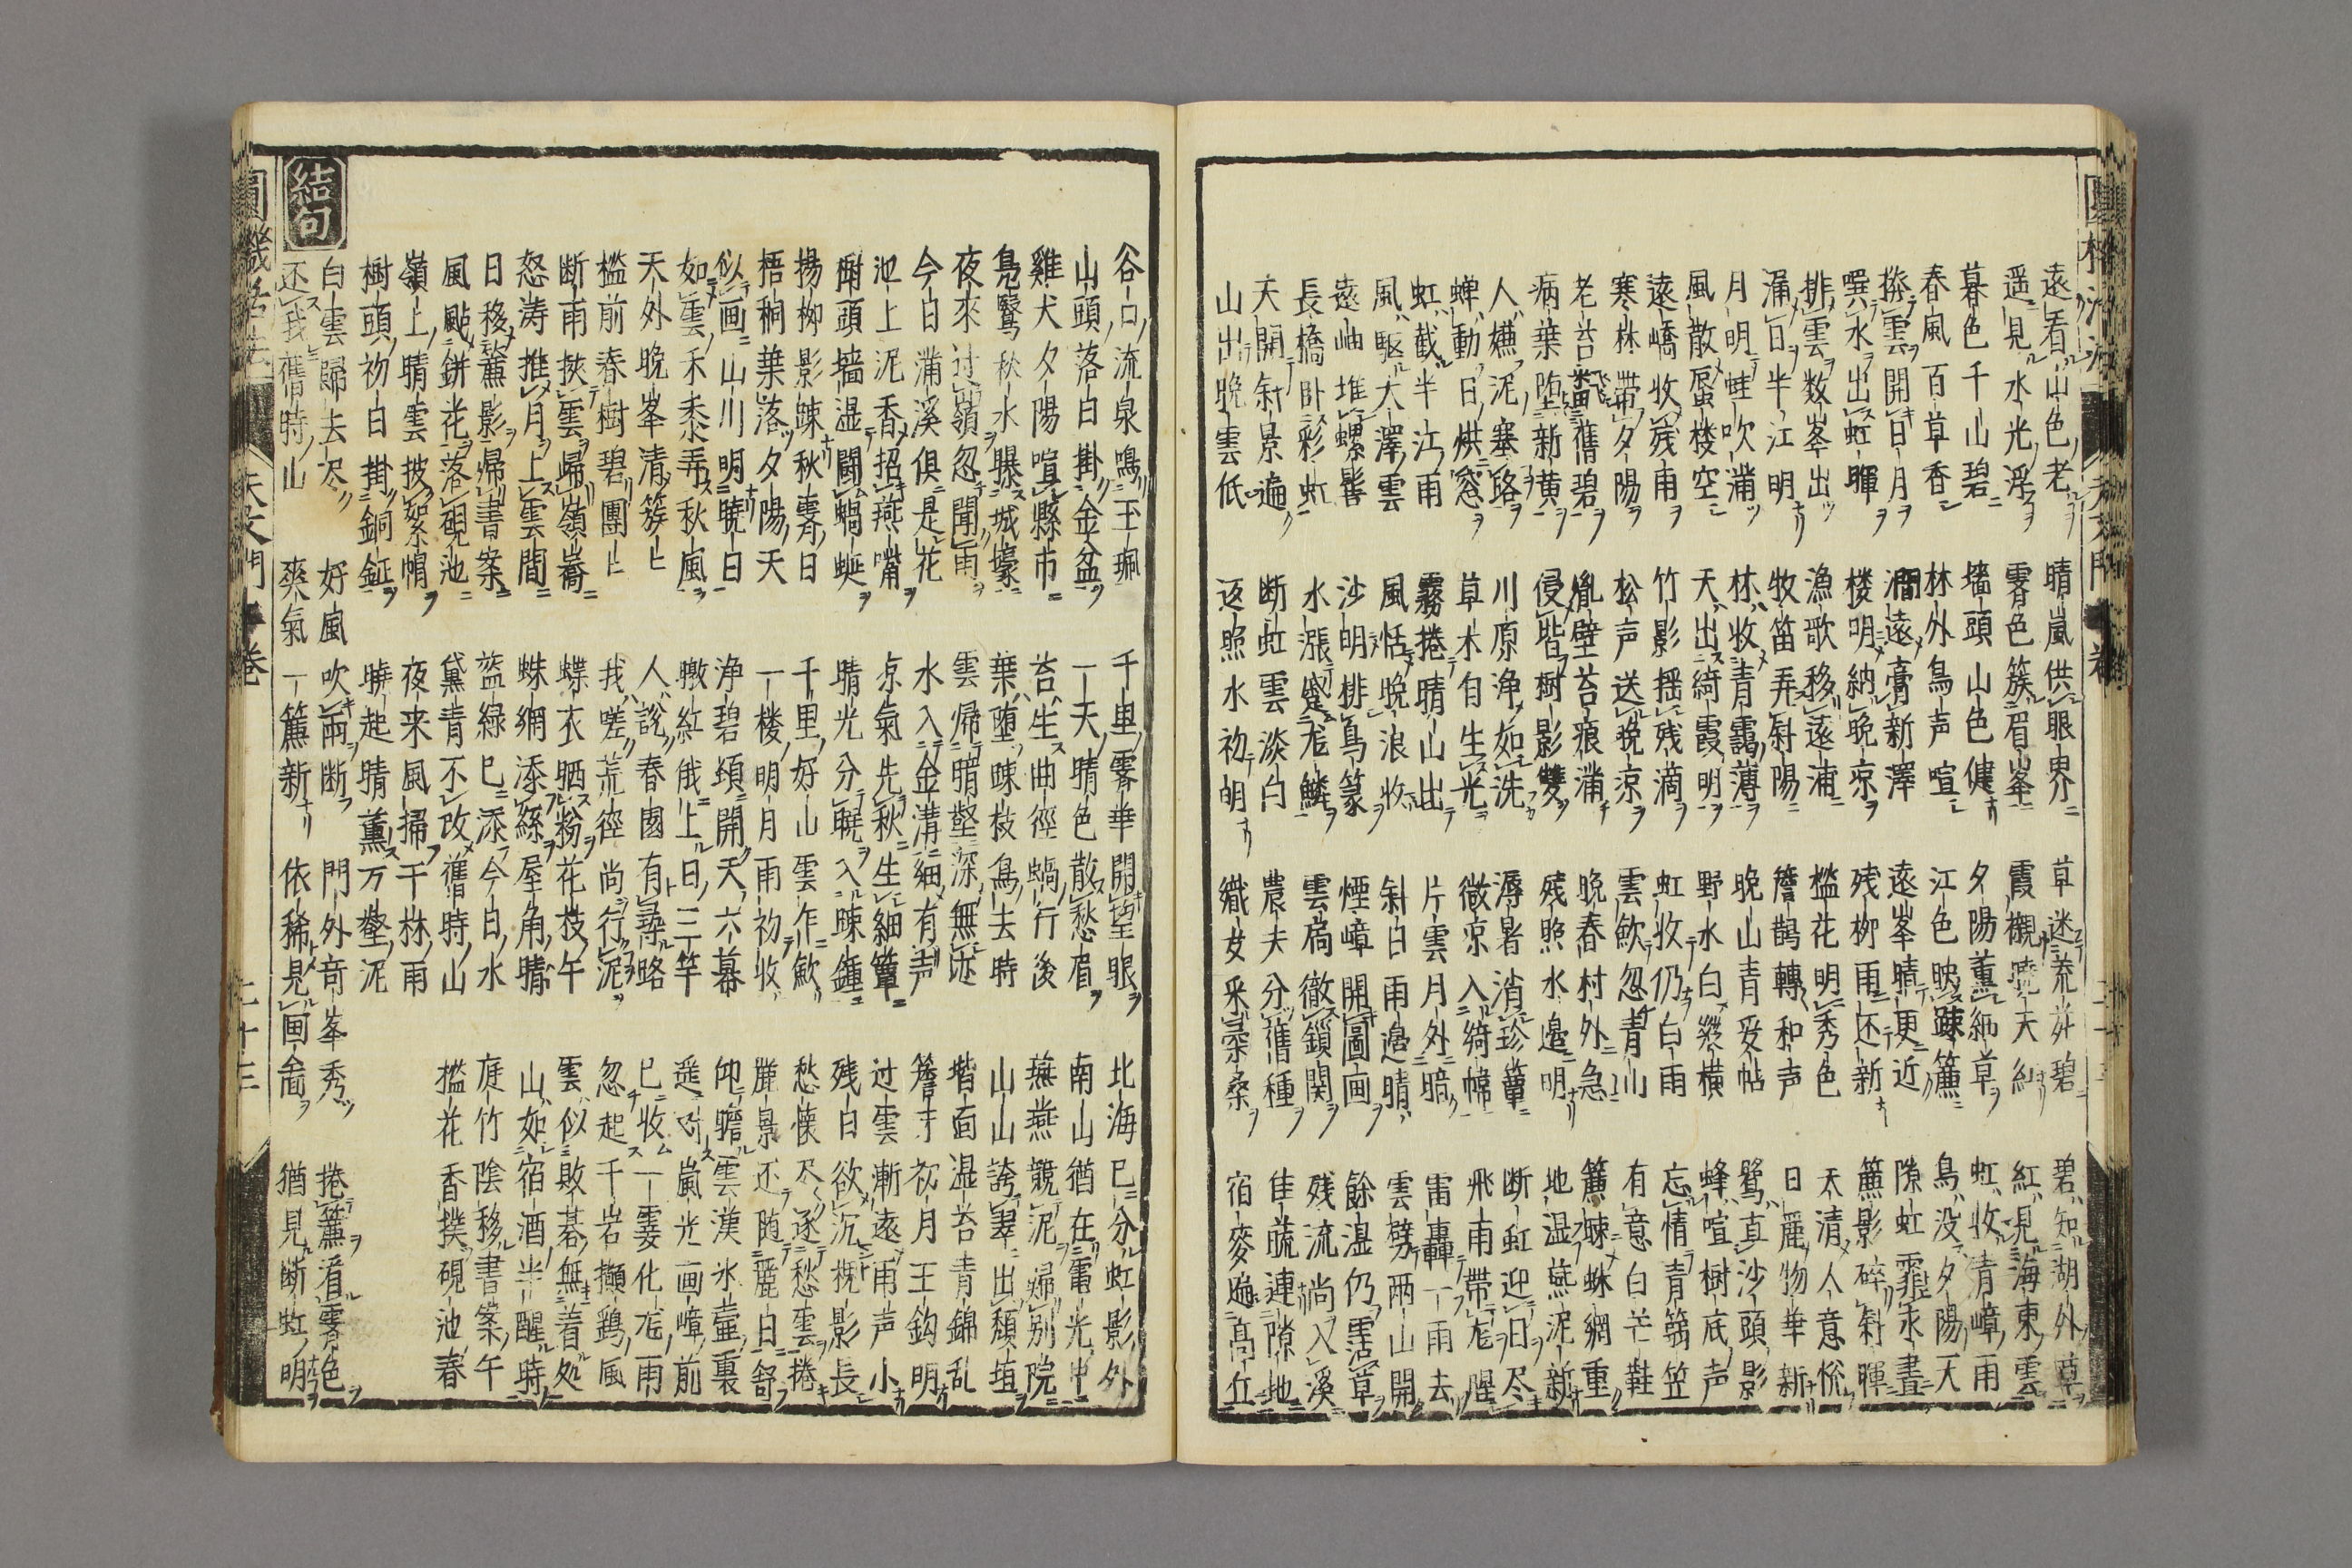 遠看山色老 晴嵐供眼界 草迷荒井碧 碧知湖外草
遥見水光浮 霽色簇眉峯 霞襯暁天紅 紅見海東雲
暮色千山碧 墻頭山色健 夕陽薫細草 虹收清嶂雨
春風百草香 林外鳥声喧 江色映踈簾 鳥没夕陽天
撥雲開日月 澗遠膏新澤 遠峯晴更近 隙虹霏永晝
噀水出虹暉 楼明納晩凉 残柳雨还新 簾影碎斜暉
排雲数峯出 漁歌移遠浦 檻花明秀色 天清人意悦
涌日半江明 牧笛弄斜陽 簷鵲轉和声 日麗物華新
月明蛙吹滿 林收青靄薄 晩山青妥帖 鷺真沙頭影
風散蜃楼空 天出綺霞明 野水白縱横 蜂喧樹底声
遠嶠收残雨 竹影揺残滴 虹收仍白雨 忘情青篛笠
寒林帶夕陽 松声送晩凉 雲歛忽青山 有意白芒鞋
老苔舊碧 壁苔痕滿 晩春村外急 簾踈蛛網重
病葉堕新黄 侵堦樹影雙 残照水邉明 地温燕泥新
人樵泥塞路 川原浄如洗 溽暑消珍簟 断虹迎日尽
蝉動日烘窓 草木自生光 微凉入綺幃 飛雨帶龍腥
虹截半江雨 霧捲晴山出 片雲月外暗 雷轟一雨去
風駆大澤雲 風恬晩浪收 斜日雨邉晴 雲劈兩山開
遠岫堆螺髻 沙明排鳥篆 煙嶂開圖画 餘湿仍霑草
長橋卧彩虹 水漲蹙龍鱗 雲扃徹鎖関 残流尚入溪
天開斜景遍 断虹雲淡白 農夫分舊種 佳蔬連隙地
山出晩雲低 返照水初明 織女釆柔桑 宿麥遍高丘
谷口流泉鳴玉珮 千里霽華開望眼 北海已分虹影外
山頭落日掛金盆 一天晴色散愁眉 南山猶在電光中
雞犬夕陽喧縣市 苔生曲徑蝸行後 蕪燕競泥歸別院
鳧鷖秋水曝城壕 葉墮踈枝鳥去時 山山誇翠出頽垣
夜來过嶺忽聞雨 雲帰晴壑深無迹 堦面湿苔青錦乱
今日滿溪俱是花 水入金溝細有声 簷牙初月玉鈎明
池上泥香招燕嘴 凉氣先秋生細簟 过雲漸遠雨声小
樹頭墻湿閙蝸蜒 晴光分暁入踈鐘 残日欲沉槐影長
揚柳影踈秋霽日 千里好山雲乍歛 愁懐尽逐愁雲捲
梧桐葉落夕陽天 一楼明月雨初收 麗景还随麗日舒
似画山川明暁日 浄碧頃開天六幕 仰瞻雲漢氷壷裏
如雲禾黍弄秋風 暾紅俄上日三竿 遥对嵐光画嶂前
天外晩峯清簇〻 人說春園有尋路 已收一霎化龍雨
檻前春樹碧團〻 我嗟荒徑尚行泥 忽起千岩攧鷄風
断雨挾雲帰嶺嶠 蝶衣晒粉花枝午 雲似敗碁無着処
怒涛推月上雲間 蛛網添絲屋角晴 山如宿酒半醒時
日移薫影帰書案 盆緑已添今日水 庭竹陰移書案午
風颭餅花落硯池 黛青不改舊時山 檻花香撲硯池春
嶺上晴雲披絮帽 夜来風掃千林雨
樹頭初日掛銅鉦 曉起晴薫万壑泥
結句
白雲歸去尽 好風吹雨断 門外奇峯秀 捲簾看霽色
还我舊時山 爽氣一簾新 依稀見画圖 猶見断虹明
圓機活法 天文門一卷 二十三